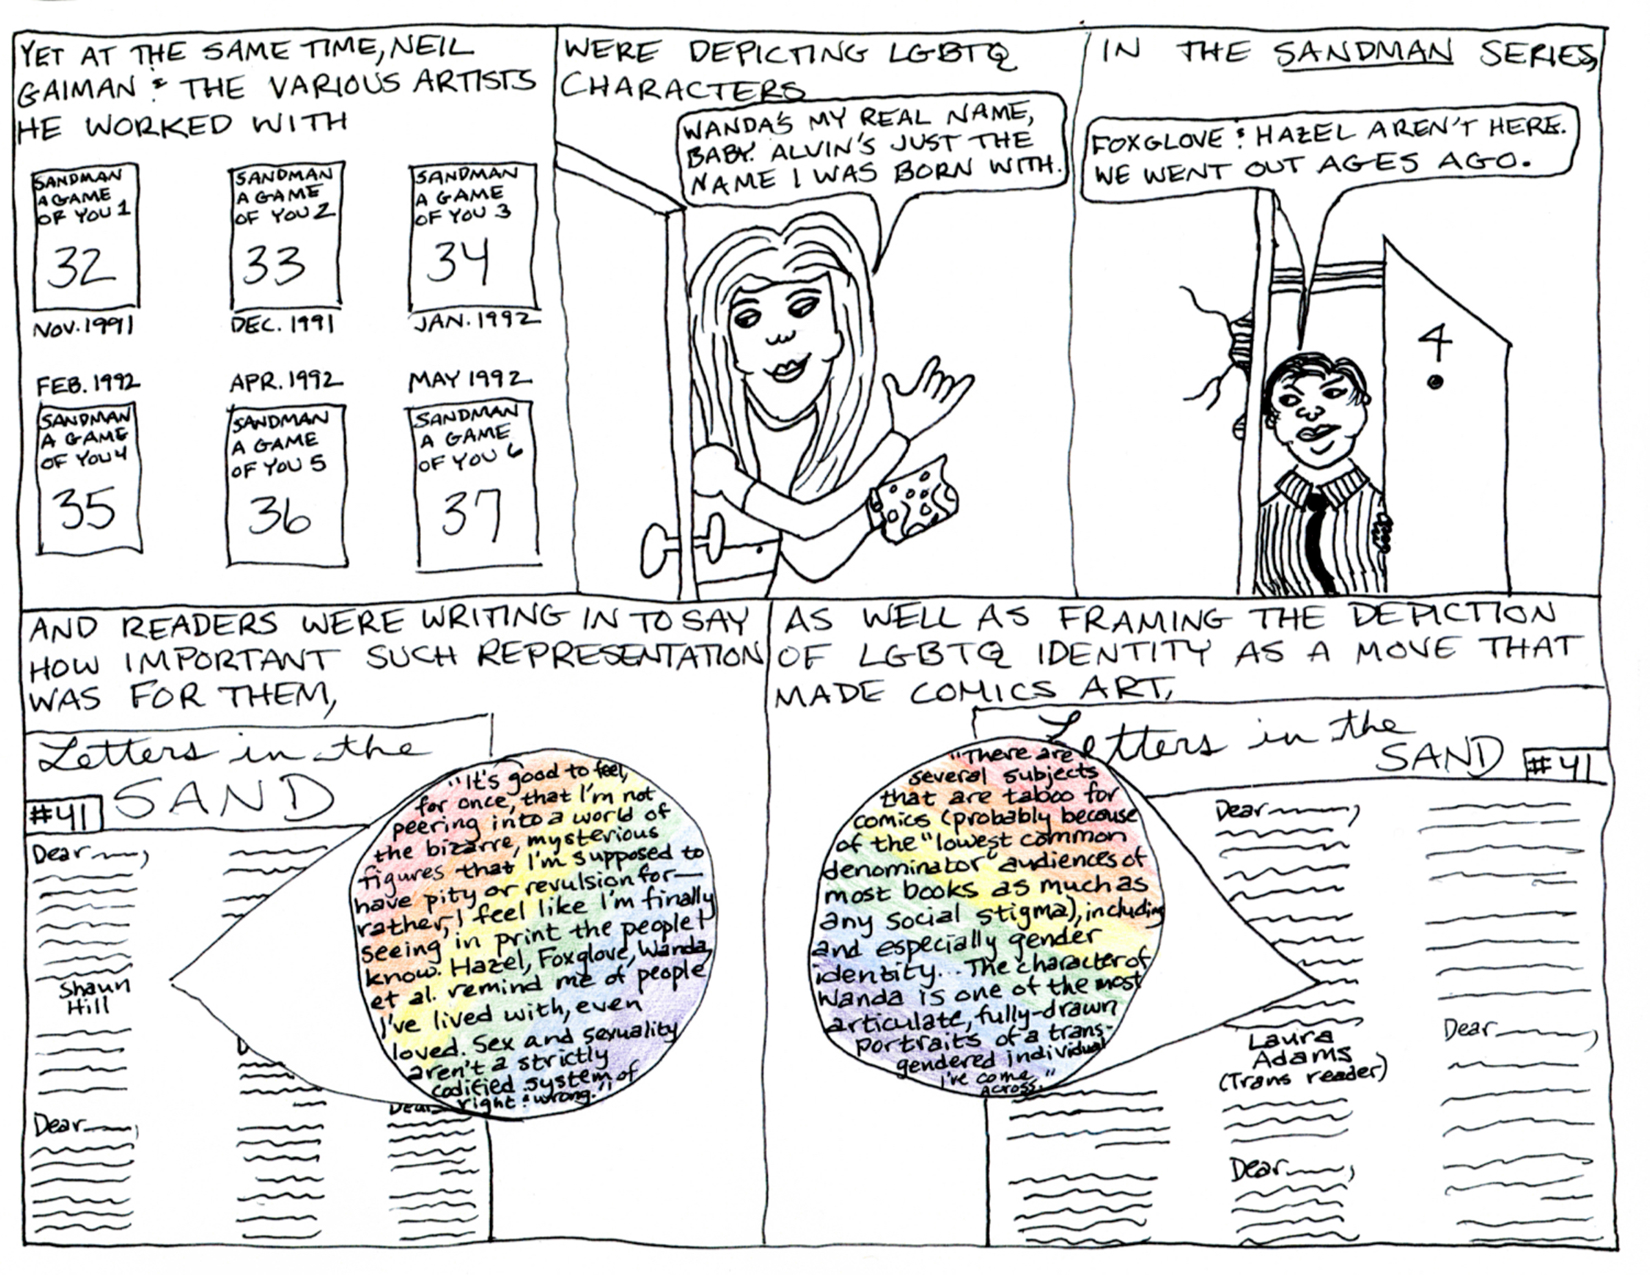 YET AT THE SAME TIME, NEIL
GAIMAN & THE VARIOUS ARTISTS
HE WORKED WITH
SANDMAN
A GAME
OF YOU 1
32
NOV. 1991
SANDMAN
A GAME
OF YOU 2
33
DEC. 1991
SANDMAN
A GAME
OF YOU 3
34
JAN. 1992
FEB. 1992
SANDMAN
A GAME
OF YOU 4
35
APR. 1992
SANDMAN
A GAME
OF YOU 5
36
MAY 1992
SANDMAN
A GAME
OF YOU 6
37
WERE DEPICTING LGBTQ
CHARACTERS
WANDA'S MY REAL NAME,
BABY. ALVIN'S JUST THE
NAME I WAS BORN WITH.
IN THE SANDMAN SERIES,
FOXGLOVE & HAZEL AREN'T HERE.
WE WENT OUT AGES AGO.
4
AND READERS WERE WRITING IN TO SAY
HOW IMPORTANT SUCH REPRESENTATION
WAS FOR THEM,
Letters in the
SAND
#41
Dear
Shaun
Hill
Dear
Dear
"It's good to feel,
for once, that I'm not
peering into a world of
the bizarre, mysterious
figures that I'm supposed to
have pity or revulsion for—
rather, I feel like I'm finally
seeing in print the people I
know. Hazel, Foxglove, Wanda,
et al. remind me of people
I've lived with, even
loved. Sex and sexuality
aren't a strictly
codified system of
right & wrong."
AS WELL AS FRAMING THE DEPICTION
OF LGBTQ IDENTITY AS A MOVE THAT
MADE COMICS ART,
Letters in the
SAND
#41
"There are
several subjects
that are taboo for
comics (probably because
of the "lowest common
denominator" audiences of
most books as much as
any social stigma), including
and especially gender
identity... The character of
Wanda is one of the most
articulate, fully-drawn
portraits of a trans-
gendered individual
I've come
across."
Dear
Laura
Adams
(Trans reader)
Dear
Dear